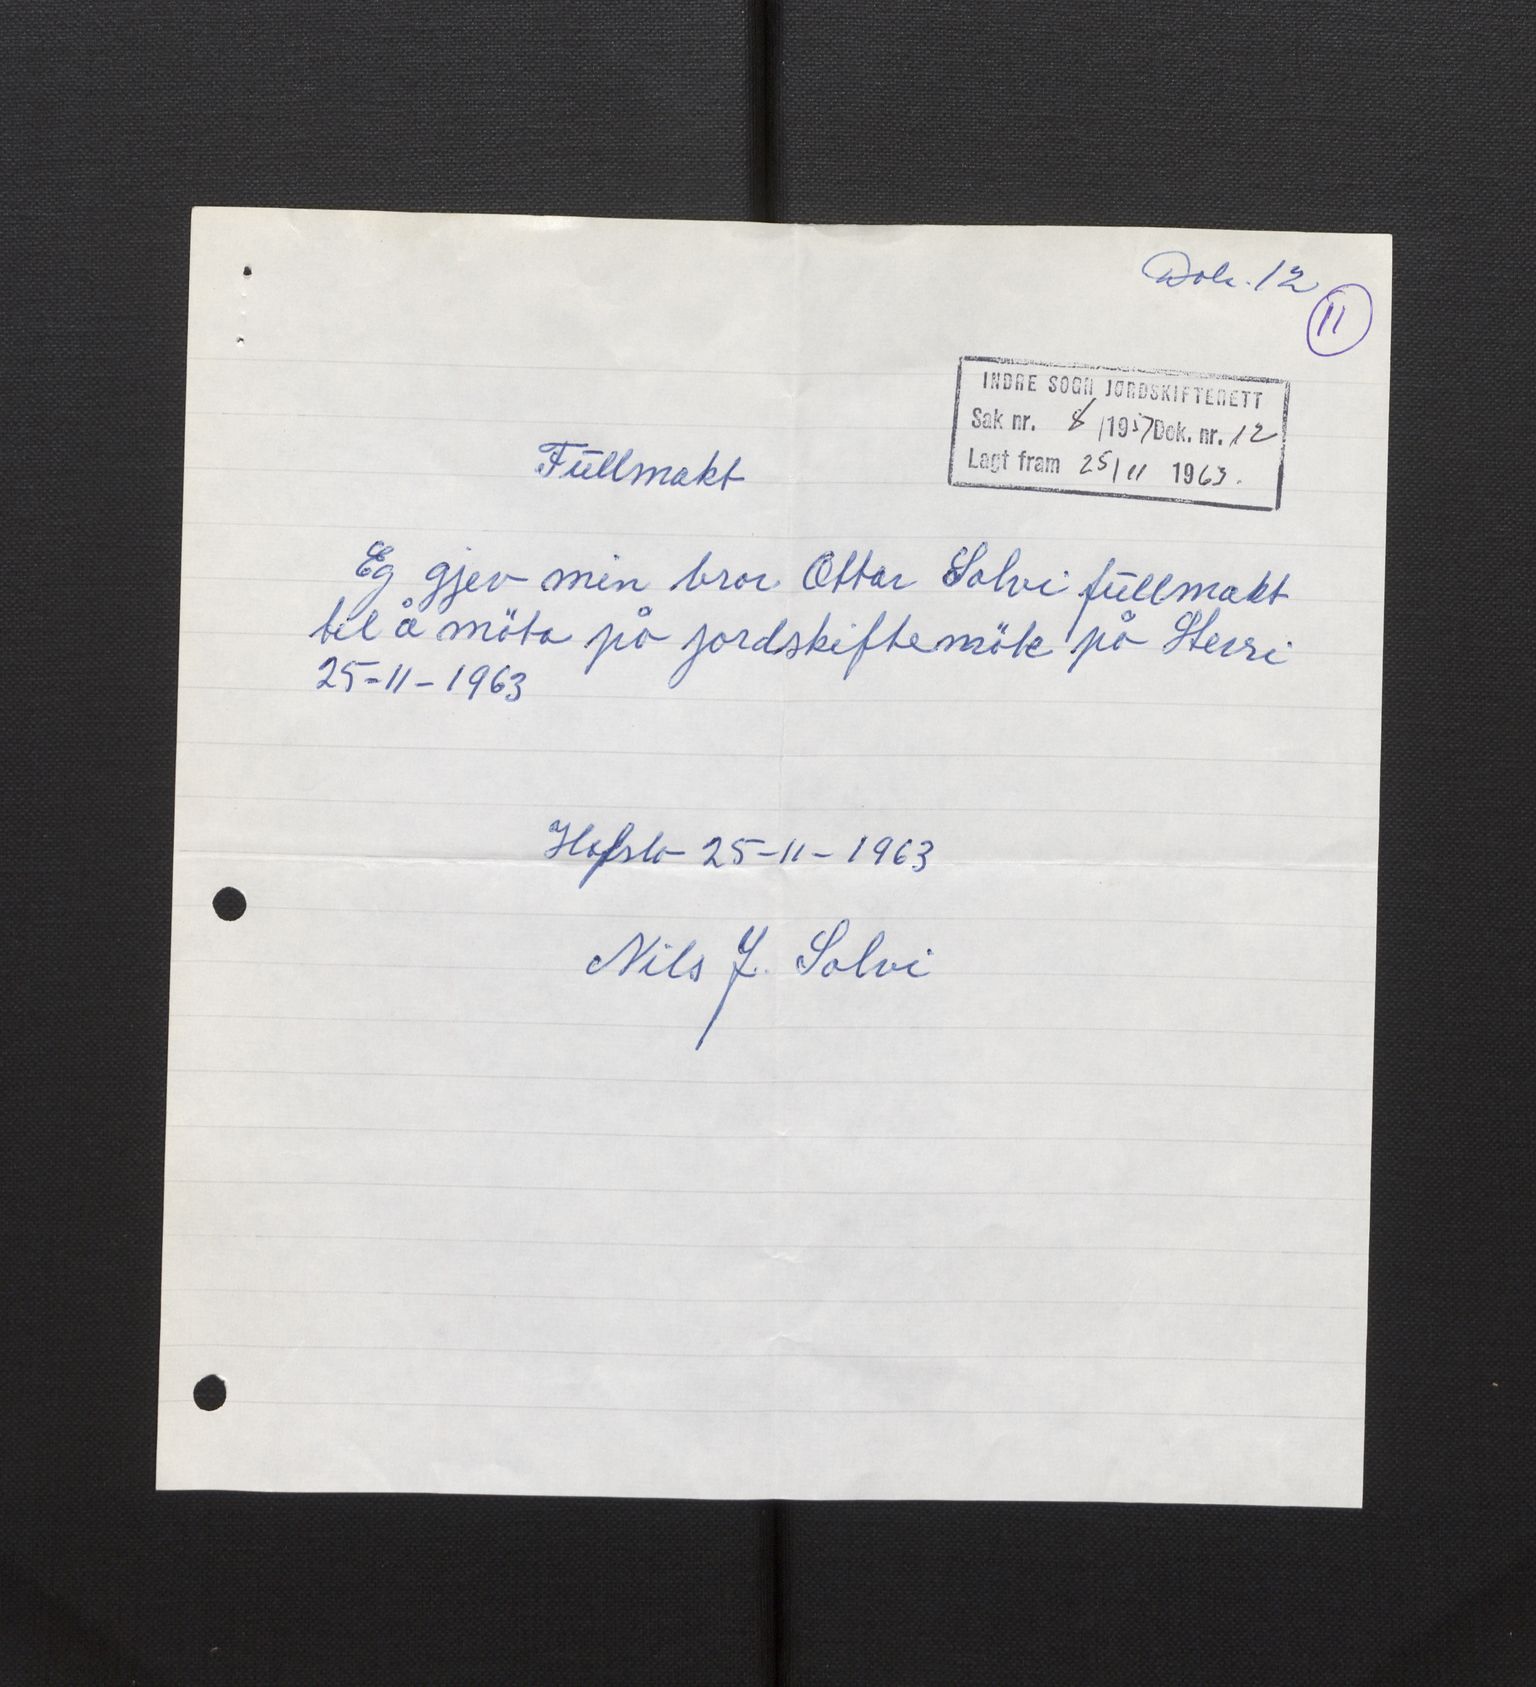 Dok. 12
11
INDRE SOGN JORDSKIFTERETT
Sak nr. 8/1957 Dok. nr. 12
Lagt fram 25/11 1963.
Fullmakt
Eg gjev min bror Ottar Solvi fullmakt
til å möta på jordskiftemöte på
25-11-1963
Hafslo 25-11-1963
Nils J. Solvi